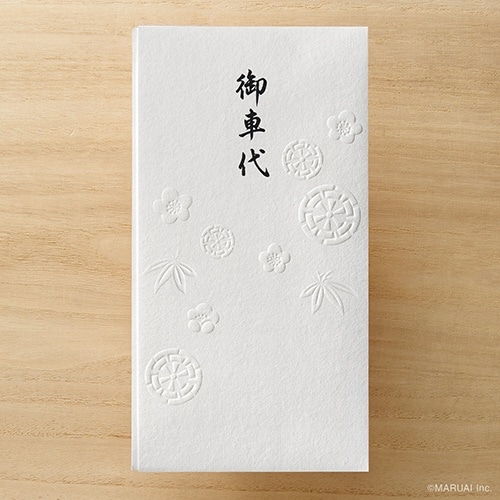 御車代
©MARUAI Inc.